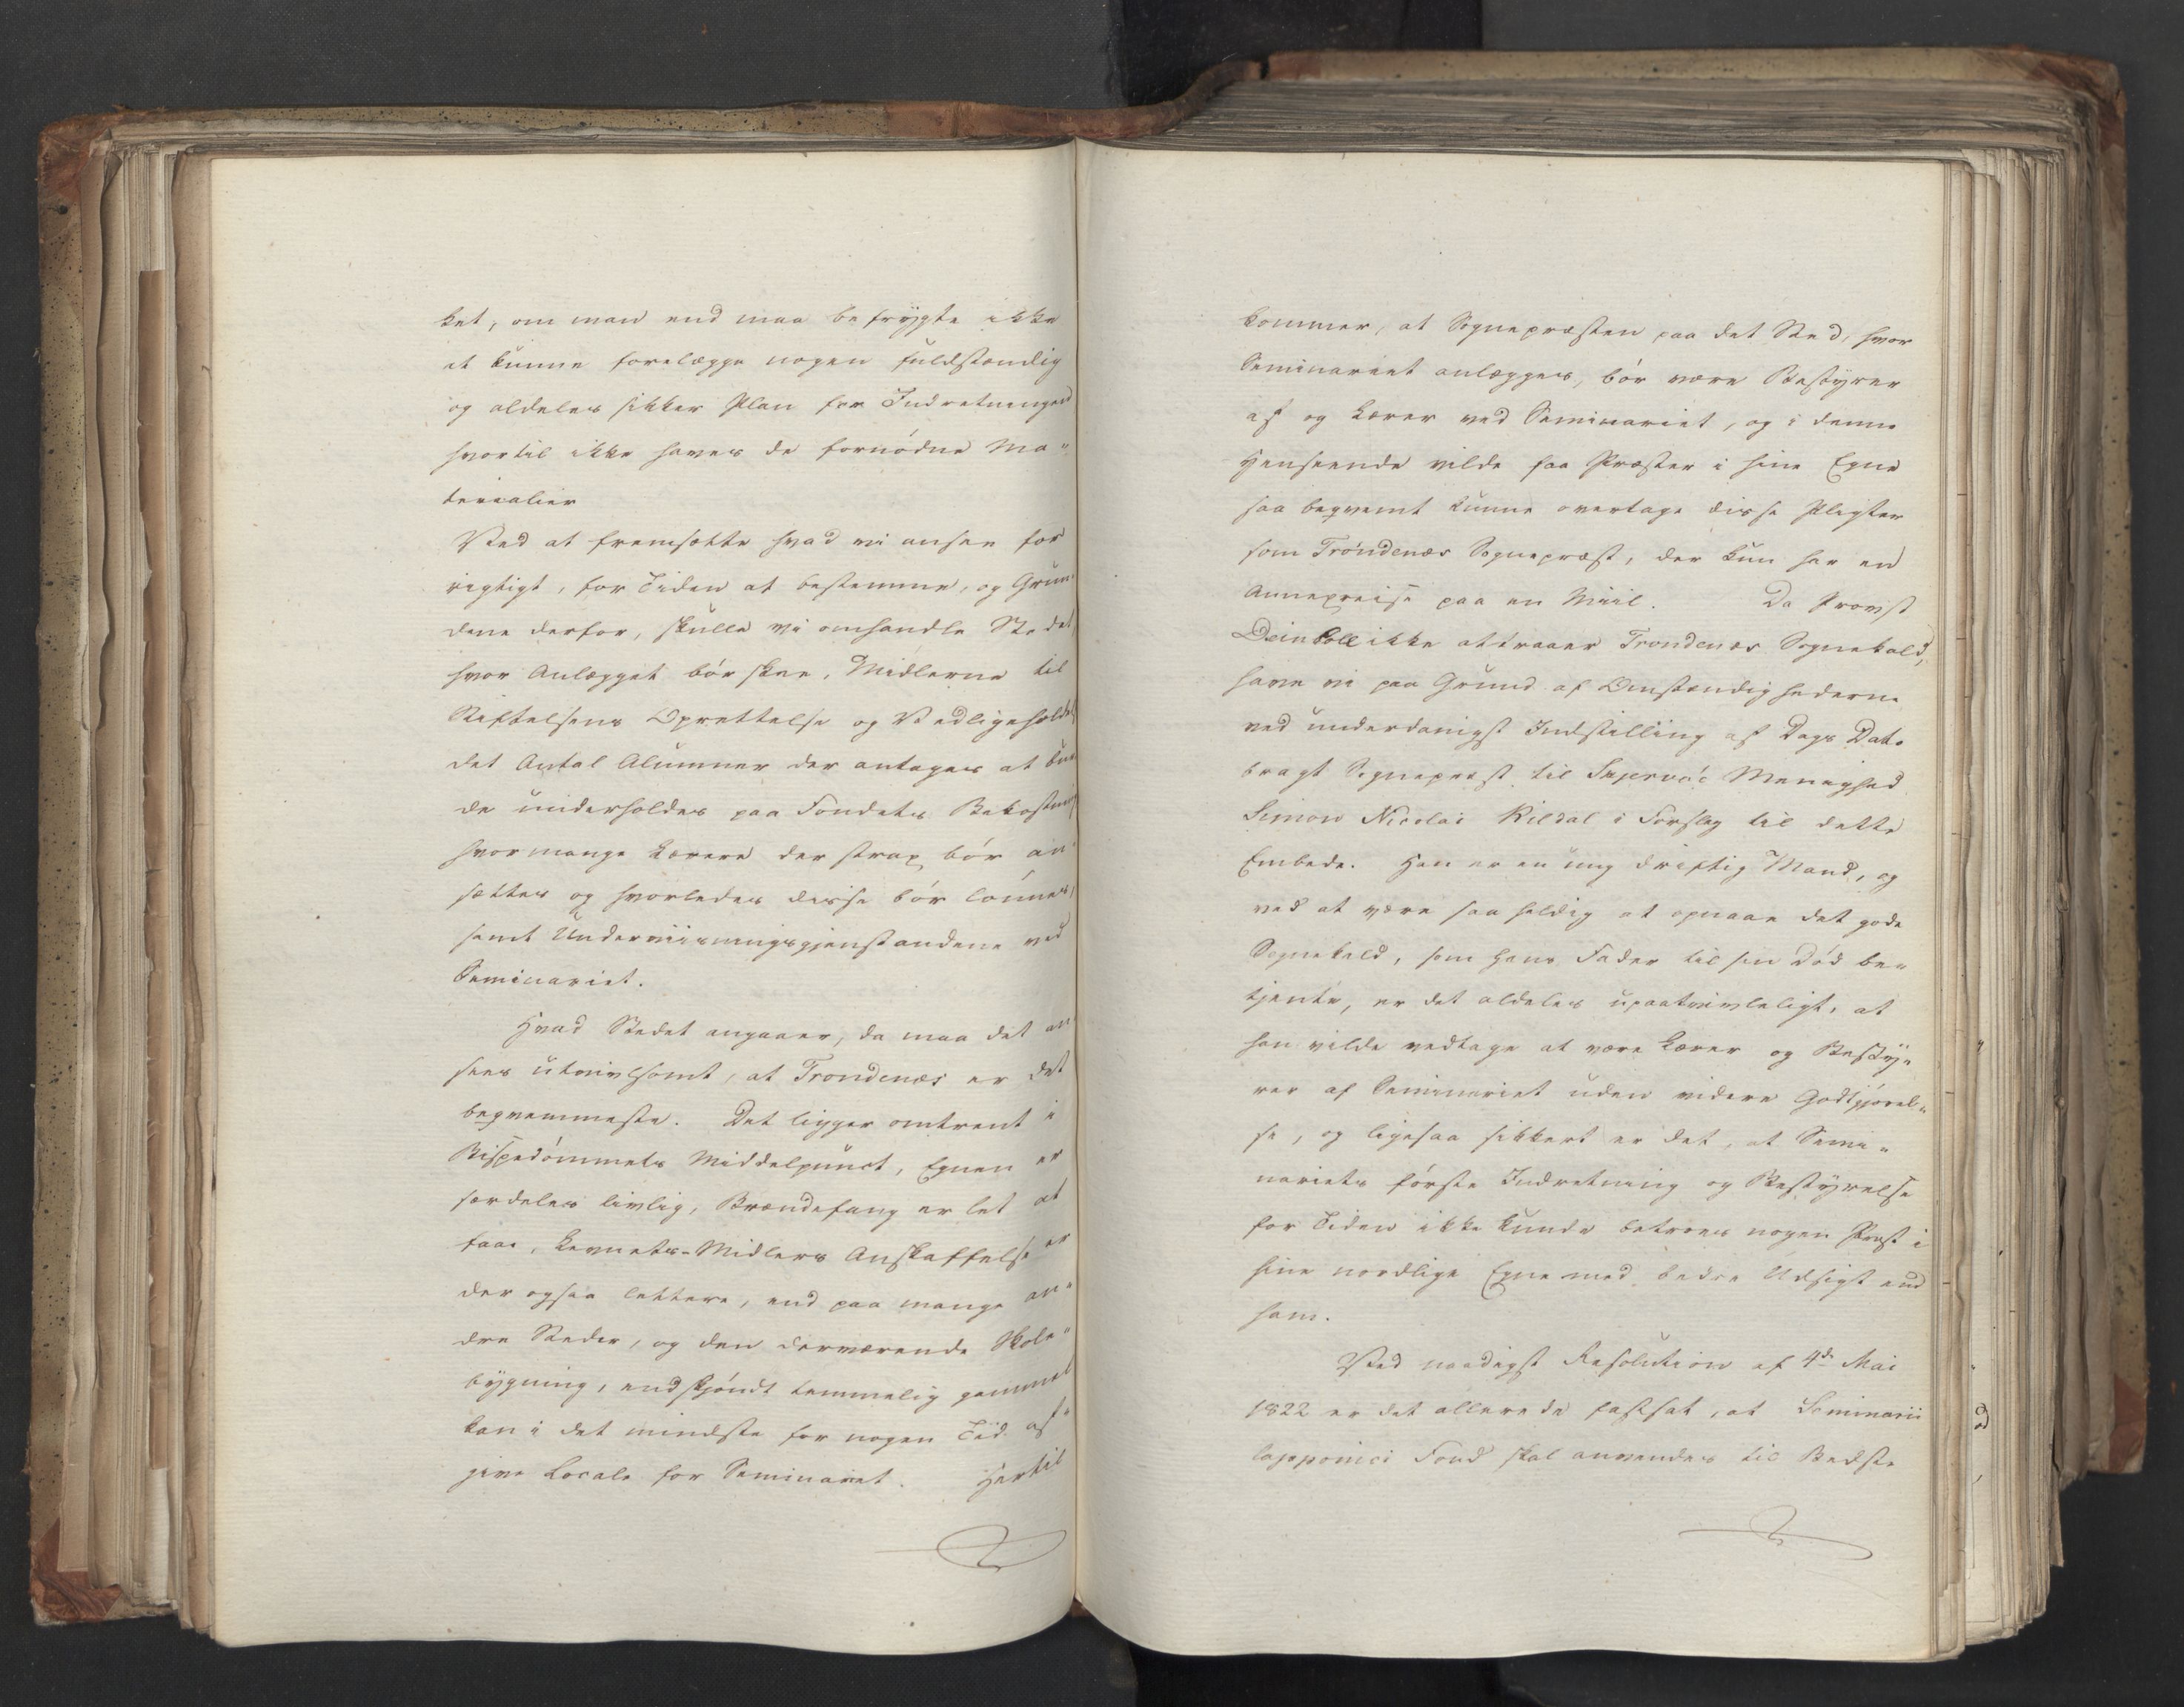 ket, om man end maa befrygte ikke
at kunne forelægge nogen fuldstændig
og aldeles sikker Plan for Indretningen
hvortil ikke haves de fornødne Ma„
terialier
Ved at fremsætte hvad vi ansee for
rigtigt, for Tiden at bestemme, og Grun„
dene derfor, skulle vi omhandle Stedet,
hvor Anlægget bør skee, Midlerne til
Stiftelsens Oprettelse og Vedligeholdel
det Antal Alumner der antages at kun
de underholdes paa Fondets Bekostning
hvormange Lærere der strax bør an„
sættes og hvorledes disse bør lønnes,
samt Underviisningsgjenstandene ved
Seminariet.
Hvad Stedet angaaer, da maa det an„
sees utvivlsomt, at Trondenæs er det
beqvemmeste. Det ligger omtrent i
Bispedømmets Middelpunct, Egnen er
særdeles livlig, Brændefang er let at
faae, Levnets-Midlers Anskaffelse er
der ogsaa lettere, end paa mange an„
dre Steder, og den derværende Skole„
bygning, endskjøndt temmelig gammel
kan i det mindste for nogen Tid af„
give Locale for Seminariet. Hertil
kommer, at Sognepræsten paa det Sted, hvor
Seminariet anlægges, bør være Bestyrer
af og Lærer ved Seminariet, og i denne
Henseende vilde faa Præster i hine Egne
saa beqvemt kunne overtage disse Pligter
som Trondenæs Sognepræst, der kun har en
Annexreise paa en Miil. Da Provst
Deinboll ikke attraaer Trondenæs Sognekald,
have vi paa Grund af Omstændighederne
ved underdanigst Indstilling af Dags Dato
bragt Sognepræst til Skjervøe Menighed
Simon Nicolai Kildal i Forslag til dette
Embede. Han er en ung driftig Mand, og
ved at være saa heldig at opnaae det gode
Sognekald, som hans Fader til sin Død be„
tjente, er det aldeles upaatvivleligt, at
han vilde vedtage at være Lærer og Besty„
rer af Seminariet uden videre Godtgjørel„
se, og ligesaa sikkert er det, at Semi„
nariets første Indretning og Bestyrelse
for Tiden ikke kunde betroes nogen Præst i
hine nordlige Egne med bedre Udsigt end
ham.
Ved naadigst Resolution af 4de Mai
1822 er det allerede fastsat, at Seminarii
lapponici Fond skal anvendes til Bedste